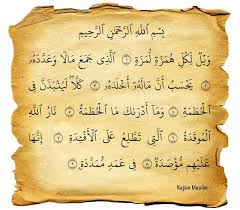 بِسْمِ اللَّهِ الرَّحْمَٰنِ الرَّحِيمِ
وَيْلٌ لِكُلِّ هُمَزَةٍ لُمَزَةٍ ۝١ الَّذِي جَمَعَ مَالًا وَعَدَّدَهُ
۝٢ يَحْسَبُ أَنَّ مَالَهُ أَخْلَدَهُ ۝٣ كَلَّا لَيُنْبَذَنَّ فِي
الْحُطَمَةِ ۝٤ وَمَا أَدْرَاكَ مَا الْحُطَمَةُ ۝٥ نَارُ اللَّهِ
الْمُوقَدَةُ ۝٦ الَّتِي تَطَّلِعُ عَلَى الْأَفْئِدَةِ ۝٧ إِنَّهَا
عَلَيْهِمْ مُؤْصَدَةٌ ۝٨ فِي عَمَدٍ مُمَدَّدَةٍ ۝٩
Kajian Muslim